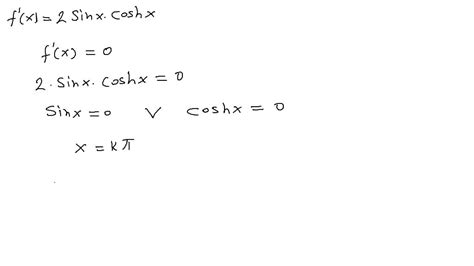 f'(x) = 2 sinx · coshx
f'(x) = 0
2 · sinx · coshx = 0
Sinx = 0 ∨ coshx = 0
x = kπ